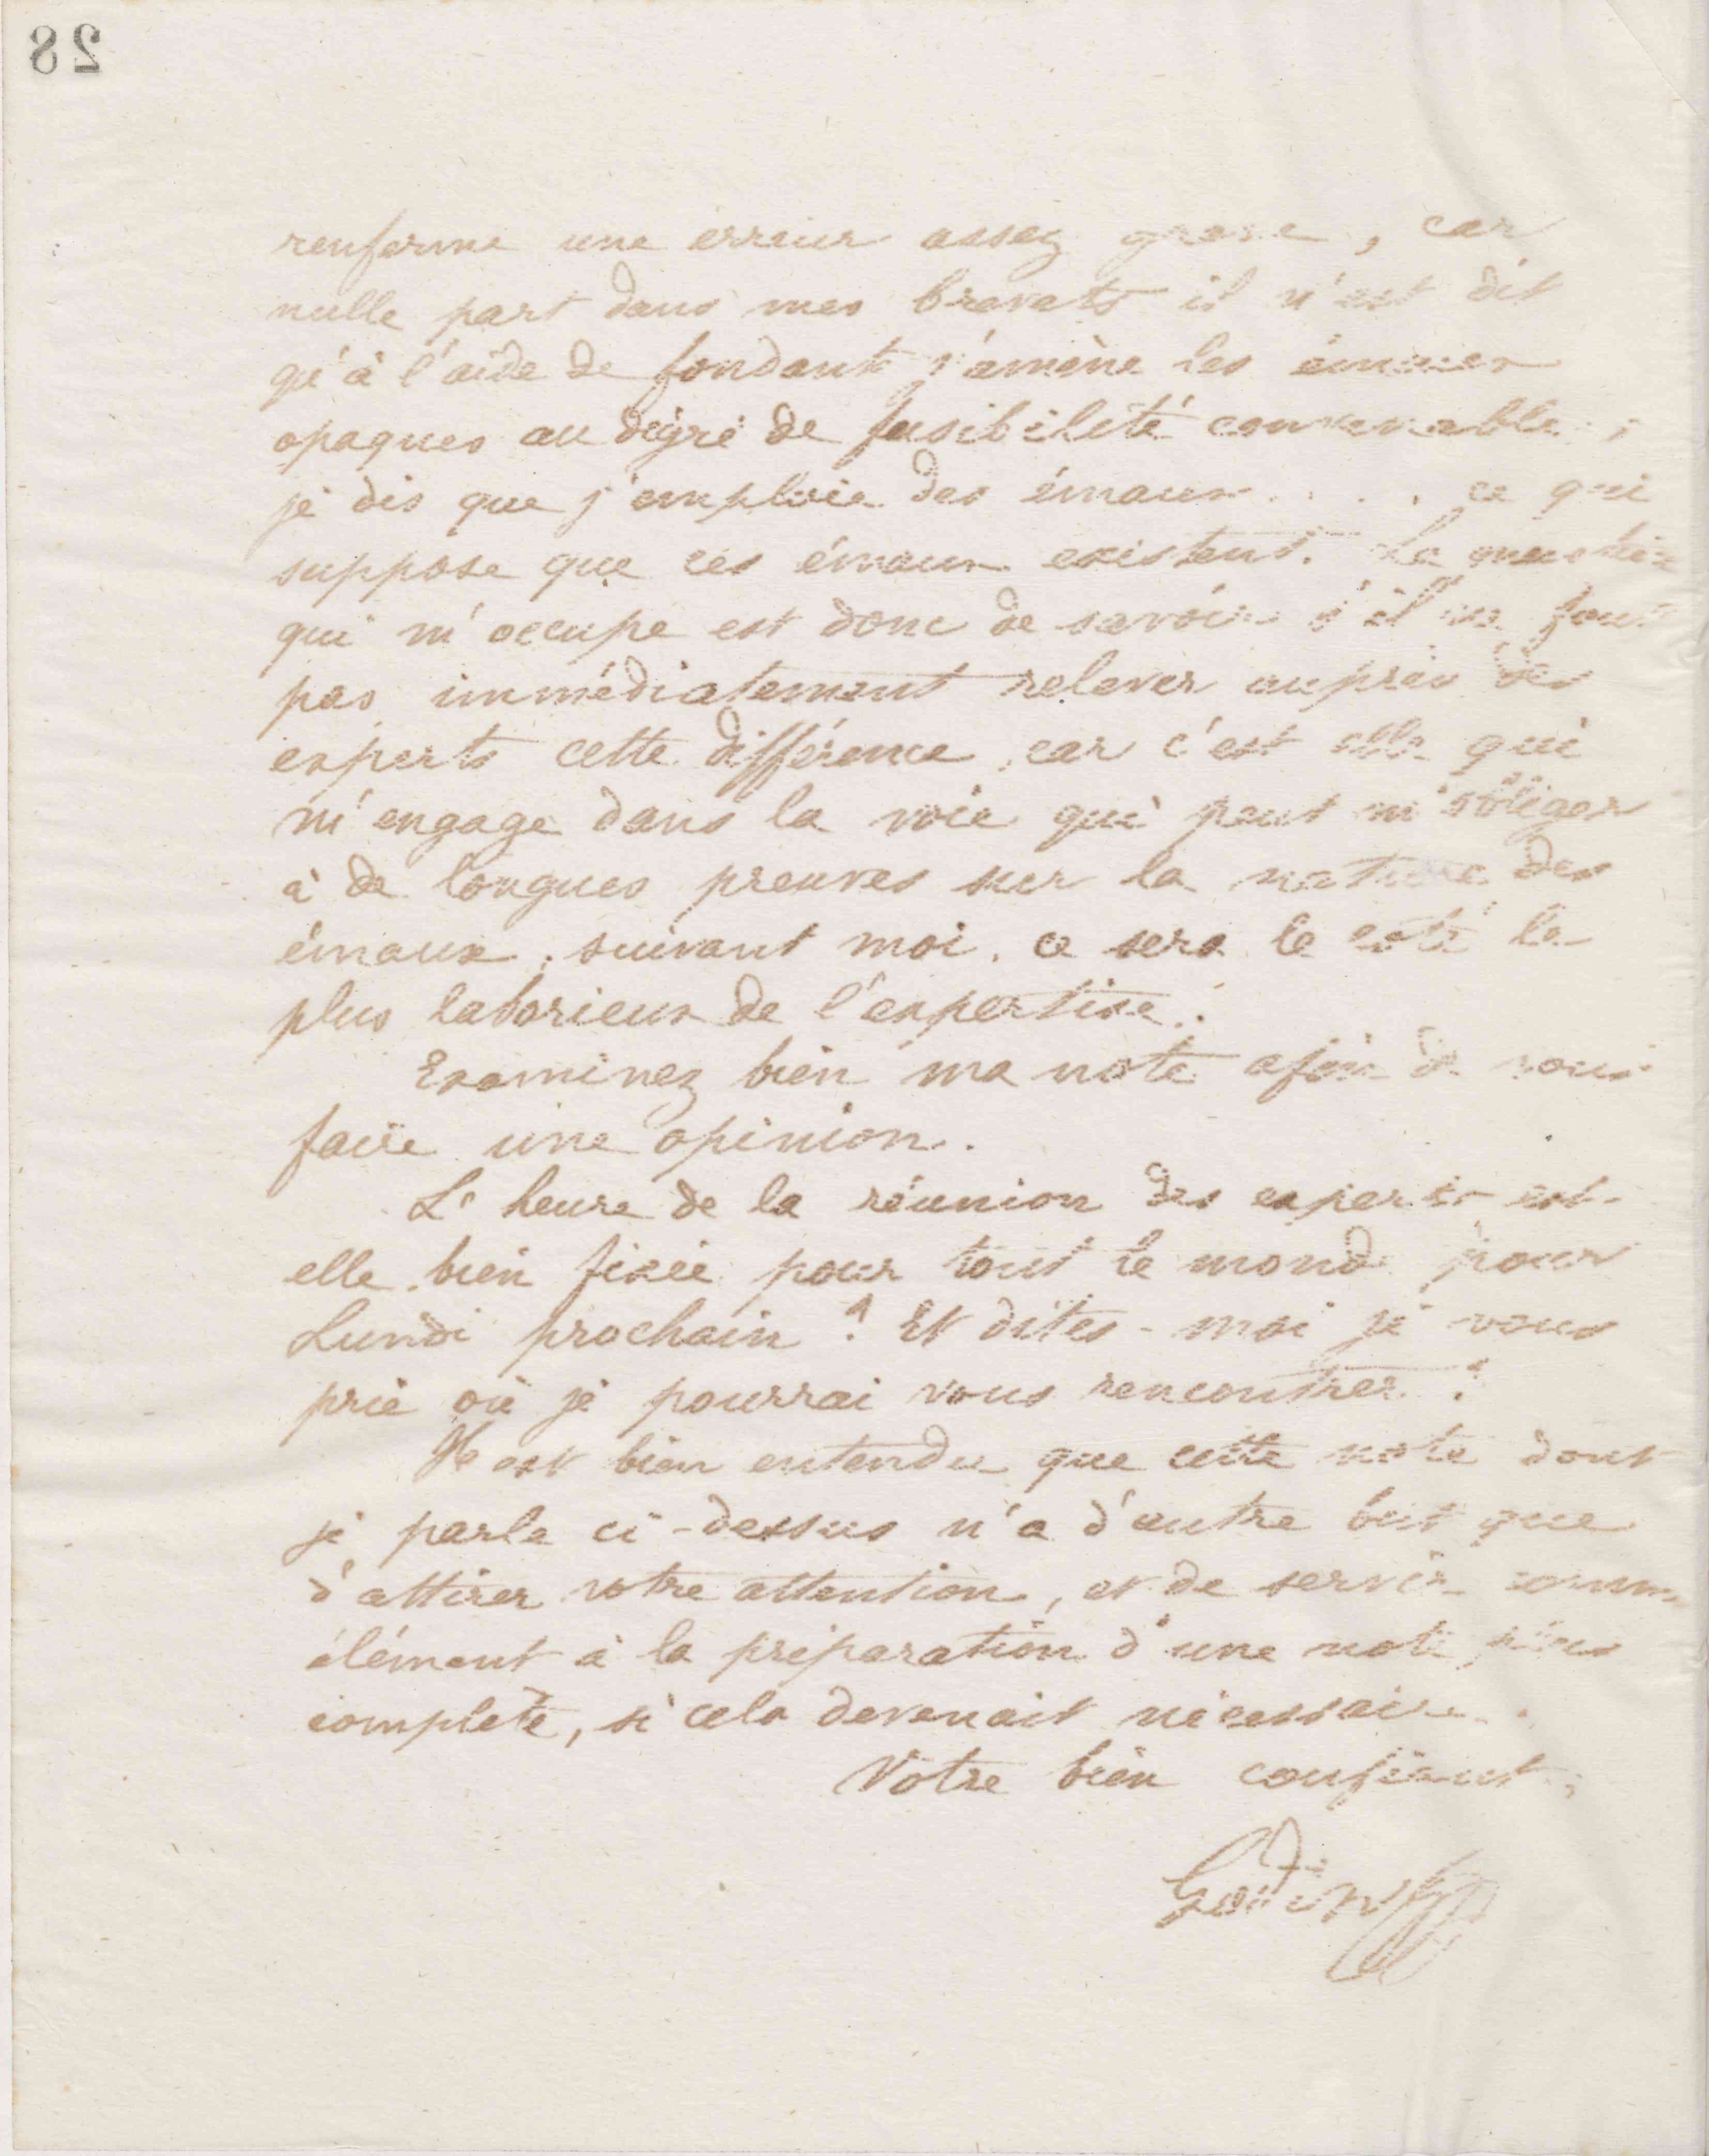 28
renferme une erreur assez grave, car
nulle part dans mes brevets il n'est dit
qu'à l'aide de fondants j'amène les émaux
opaques au degré de fusibilité convenable ;
je dis que j'emploie des émaux . . . . ce qui
suppose que ces émaux existent. La question
qui m'occupe est donc de savoir s'il ne faut
pas immédiatement relever auprès des
experts cette différence, car c'est elle qui
m'engage dans la voie qui peut m'obliger
à de longues preuves sur la nature des
émaux ; suivant moi, ce sera le côté le
plus laborieux de l'expertise.
Examinez bien ma note afin de vous
faire une opinion.
L'heure de la réunion des experts est-
elle bien fixée pour tout le monde pour
Lundi prochain ? Et dites-moi je vous
prie où je pourrai vous rencontrer ?
Il est bien entendu que cette note dont
je parle ci-dessus n'a d'autre but que
d'attirer votre attention, et de servir comme
élément à la préparation d'une note plus
complète, si cela devenait nécessaire.
Votre bien confiant,
Godin